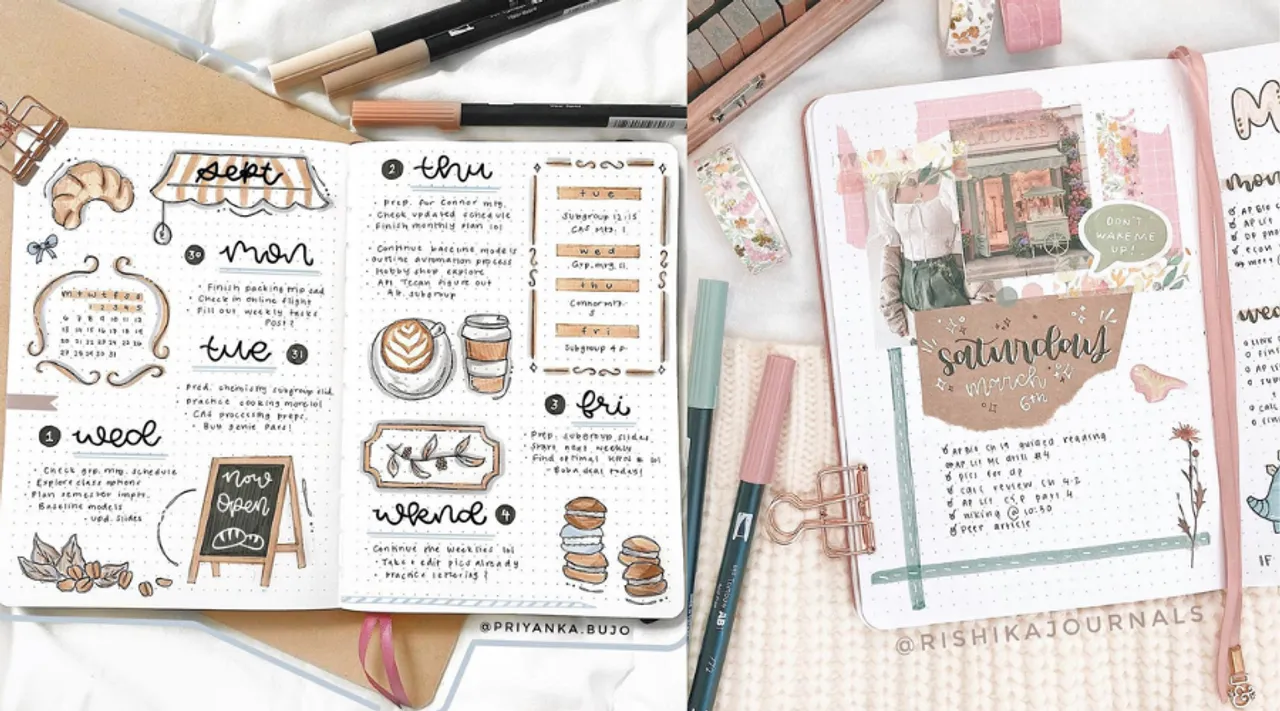 sept
mon
30
Finish packing trip
Check in online flight
Fill out weekly tasks
Post?
m t w t f s s
1 2 3 4 5
6 7 8 9 10 11 12
13 14 15 16 17 18 19
20 21 22 23 24 25 26
27 28 29 30 31
tue
31
Pred. chemistry subgroup
practice cooking more lol
CAS processing preps.
Buy genie pass!
1
wed
Check grp. mtg. schedule
Explore class options
Plan semester impr.
Baseline models
upd. slides
now
open
2
thu
Prep. for Connor mtg.
Check updated schedule
Finish monthly plan lol
Continue baseline models
outline automation process
Hobby shop explore
API Tecan figure out
subgroup
tue
Subgroup 12:15
CAS Mtg. 1
wed
Grp. mtg. 11
thu
Connor mtg.
5
fri
Subgroup 4 p.
3
fri
Prep. subgroup slides.
Share next weekly
Find optimal
Boba deal today!
wknd
4
Continue the weeklies lol
Take + edit pics already
practice lettering?
@PRIYANKA.BUJO
DON'T
WAKE ME
UP!
saturday
march
6th
AP Bio Ch 19 guided reading
AP Lit MC drill #4
pics for dp
calc review ch 4.2
AP Lit part 4
hiking @ 10:30
peer article
@RISHIKAJOURNALS
M
mon
AP Bio
AP Lit
wed
IF